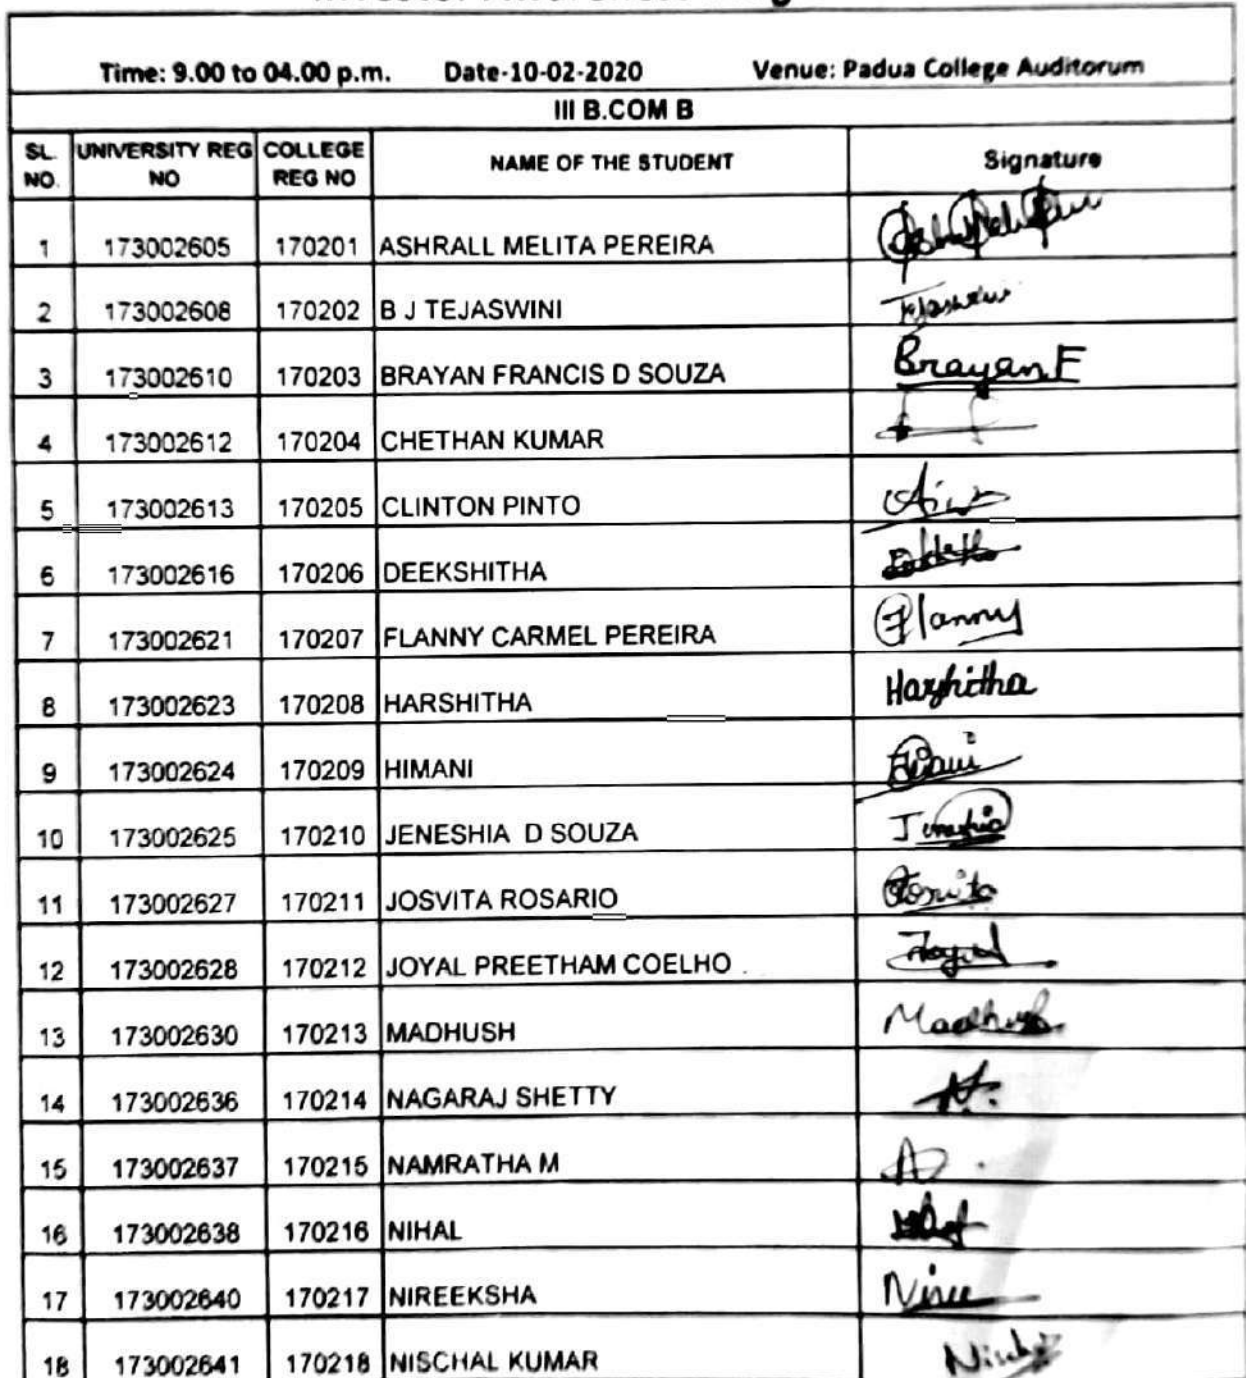 Time: 9.00 to 04.00 p.m. Date-10-02-2020 Venue: Padua College Auditorum
III B.COM B
SL. NO. UNIVERSITY REG NO COLLEGE REG NO NAME OF THE STUDENT Signature
1 173002605 170201 ASHRALL MELITA PEREIRA
2 173002608 170202 B J TEJASWINI
3 173002610 170203 BRAYAN FRANCIS D SOUZA Brayan F
4 173002612 170204 CHETHAN KUMAR
5 173002613 170205 CLINTON PINTO
6 173002616 170206 DEEKSHITHA
7 173002621 170207 FLANNY CARMEL PEREIRA Flanny
8 173002623 170208 HARSHITHA Harshitha
9 173002624 170209 HIMANI
10 173002625 170210 JENESHIA D SOUZA
11 173002627 170211 JOSVITA ROSARIO
12 173002628 170212 JOYAL PREETHAM COELHO
13 173002630 170213 MADHUSH
14 173002636 170214 NAGARAJ SHETTY
15 173002637 170215 NAMRATHA M
16 173002638 170216 NIHAL
17 173002640 170217 NIREEKSHA
18 173002641 170218 NISCHAL KUMAR